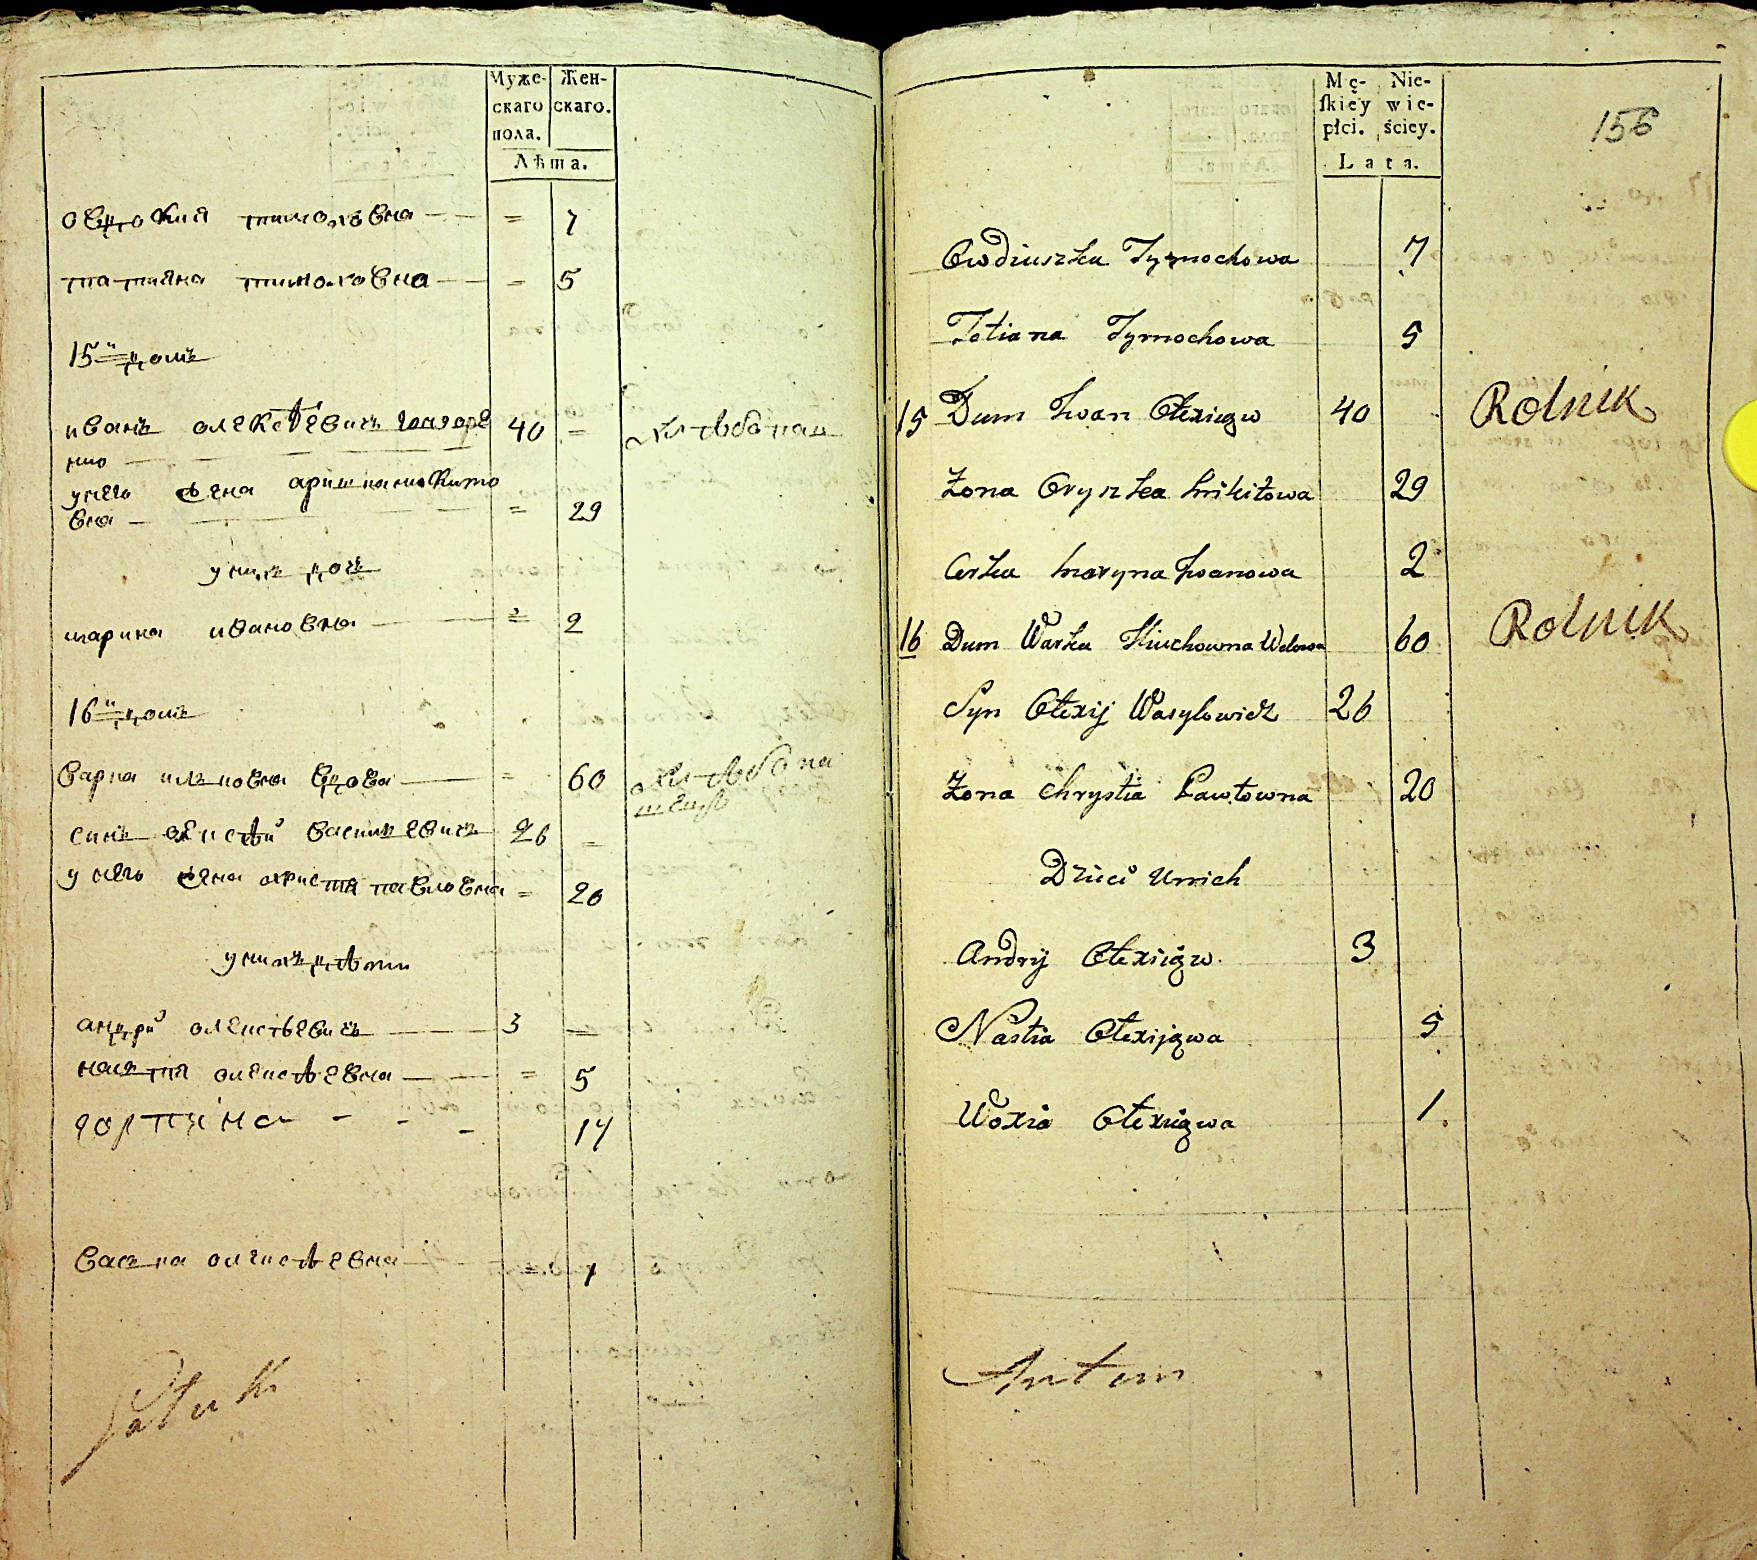 Муже-
скаго
пола.
Жен-
скаго.
Лѣта.
овдокия тимоховна = 7
татияна тимоховна = 5
15й домъ
иванъ олексѣевичъ 40 =
нко
унего жена аришка микито
вна = 29
унихъ дочь
марина ивановна = 2
16й домъ
варка илковна вдова = 60
синъ олексѣй василевичъ 26 =
у него жена христя павловна = 20
унихъ дѣти
андрій олексѣевичъ 3 =
настя олексѣевна = 5
горпина 14
васка олексѣевна = 1
Mę-
skiey
płci.
Nie-
wie-
ściey.
Lata.
156
Owdiuszka Tymochowa 7
Tatiana Tymochowa 5
15 Dum Iwan Ołexiiow 40 Rolnik
Żona Oryszka Mikitowa 29
Corka Maryna Iwanowa 2
16 Dum Warka 60 Rolnik
Syn Ołexij Wasylowicz 26
Żona Chrystia Pawłowna 20
Dzieci u nich
Andrij Ołexiiow 3
Nastia Ołexijowa 5
Ołexiiowa 1
Antem